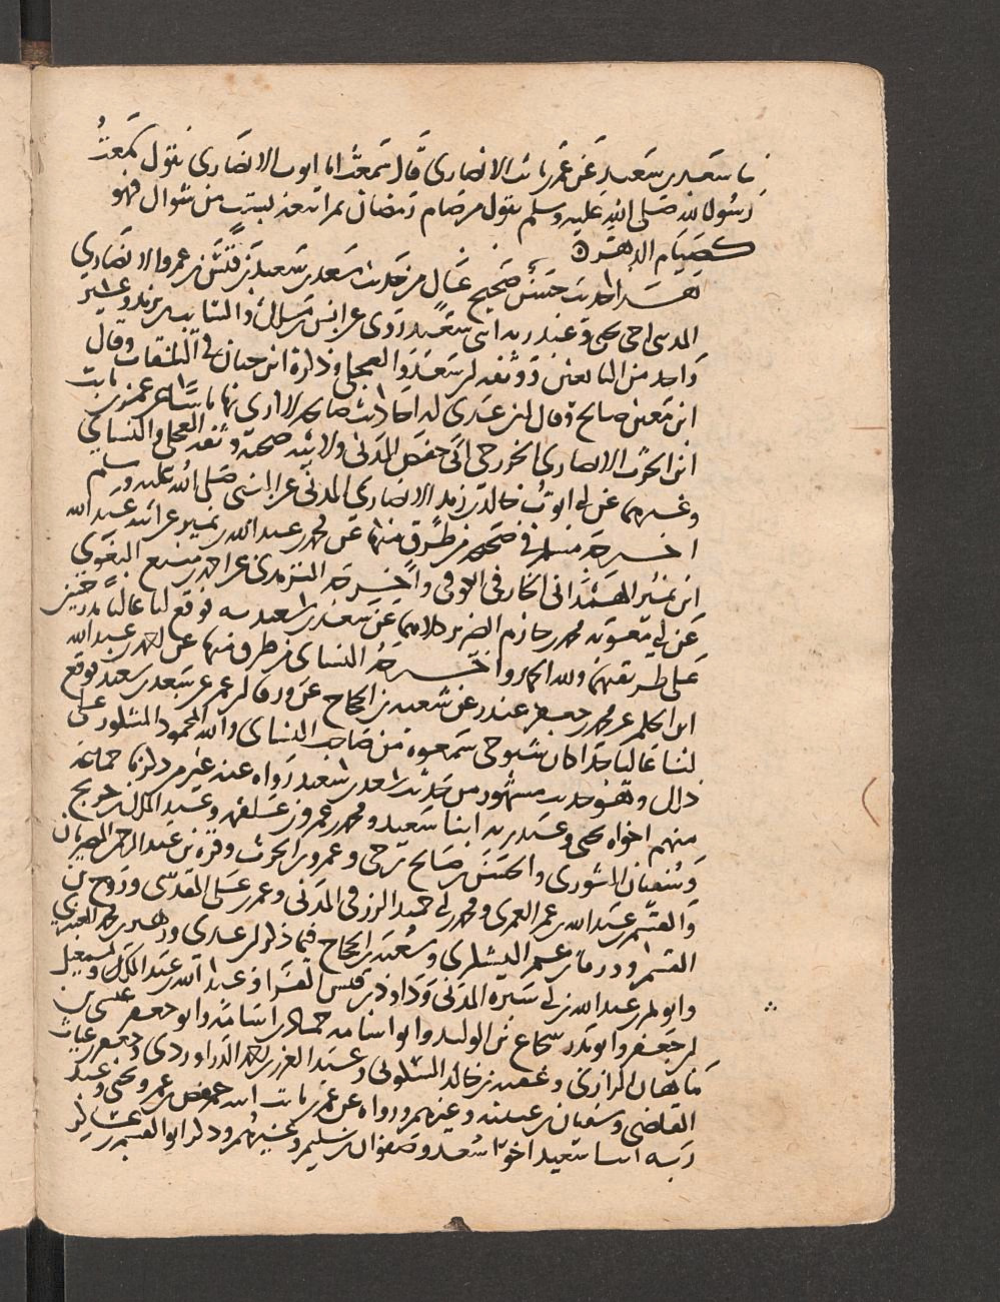 نا سعد بن سعيد عن عمر بن ثابت الانصاري قال سمعت ابا ايوب الانصاري يقول سمعت
رسول الله صلى الله عليه وسلم يقول من صام رمضان ثم اتبعه بست من شوال فهو
كصيام الدهر
هذا حديث حسن صحيح عال من حديث سعد بن سعيد بن قيس بن عمرو الانصاري
المدني اخي يحيى وعبد ربه ابني سعيد روى عن انس بن مالك والسائب بن يزيد وغير
واحد من التابعين ووثقه ابن سعد والعجلي وذكره ابن حبان في الثقات وقال
ابن معين صالح وقال ابن عدي له احاديث صالحة لا ارى بها باسا عن عمر بن ثابت
ابن الحرث الانصاري الخزرجي المدني ولابيه صحبة وثقه العجلي والنسائي
وغيرهما عن ابي ايوب خالد بن زيد الانصاري المدني عن النبي صلى الله عليه وسلم
اخرجه مسلم في صحيحه من طرق منها عن محمد بن عبد الله بن نمير عن ابيه عبد الله
ابن نمير الهمداني الخارفي الكوفي واخرجه الترمذي عن احمد بن منيع البغوي
عن ابي معوية محمد بن خازم الضرير كلاهما عن سعد بن سعيد به فوقع لنا عاليا بدرجتين
على طريقتهما ولله الحمد واخرجه النسائي من طرق منها عن احمد بن عبد الله
ابن الحكم عن محمد بن جعفر غندر عن شعبة بن الحجاج عن ورقا بن عمر عن سعد بن سعيد فوقع
لنا عاليا جدا كان شيوخي سمعوه من صاحب النسائي ولله المحمود المشكور على
ذلك وهو حديث مشهور من حديث سعد بن سعيد رواه عنه غير من ذكرنا جماعة
منهم اخواه يحيى وعبد ربه ابنا سعيد ومحمد بن عمرو بن علقمة وعبد الملك بن جريج
وسفيان الثوري والحسن بن صالح بن حي وعمرو بن الحرث وقرة بن عبد الرحمن المصريان
والقسم بن عبد الله بن عمر العمري ومحمد بن ابي حميد الزرقي المدني وعمر بن علي المقدمي وروح بن
القسم وورقا بن عمر اليشكري وشعبة بن الحجاج فيما ذكر ابن عدي وزهير بن محمد العنبري
وابو بكر بن عبد الله بن ابي سبرة المدني وداود بن قيس الفراء وعبد الله بن عبد الملك واسمعيل
بن جعفر وابو بدر شجاع بن الوليد وابو اسامة حماد بن اسامة وابو جعفر عيسى بن
ماهان الرازي وعقبة بن خالد السكوني وعبد العزيز بن محمد الدراوردي وحفص بن غياث
القاضي وسفيان بن عيينة وغيرهم ورواه عن عمر بن ثابت ابنه حفص بن عمر ويحيى وعبد
ربه ابنا سعيد اخوا سعد وصفوان بن سليم وغيرهم وذكر ابو القسم بن عساكر